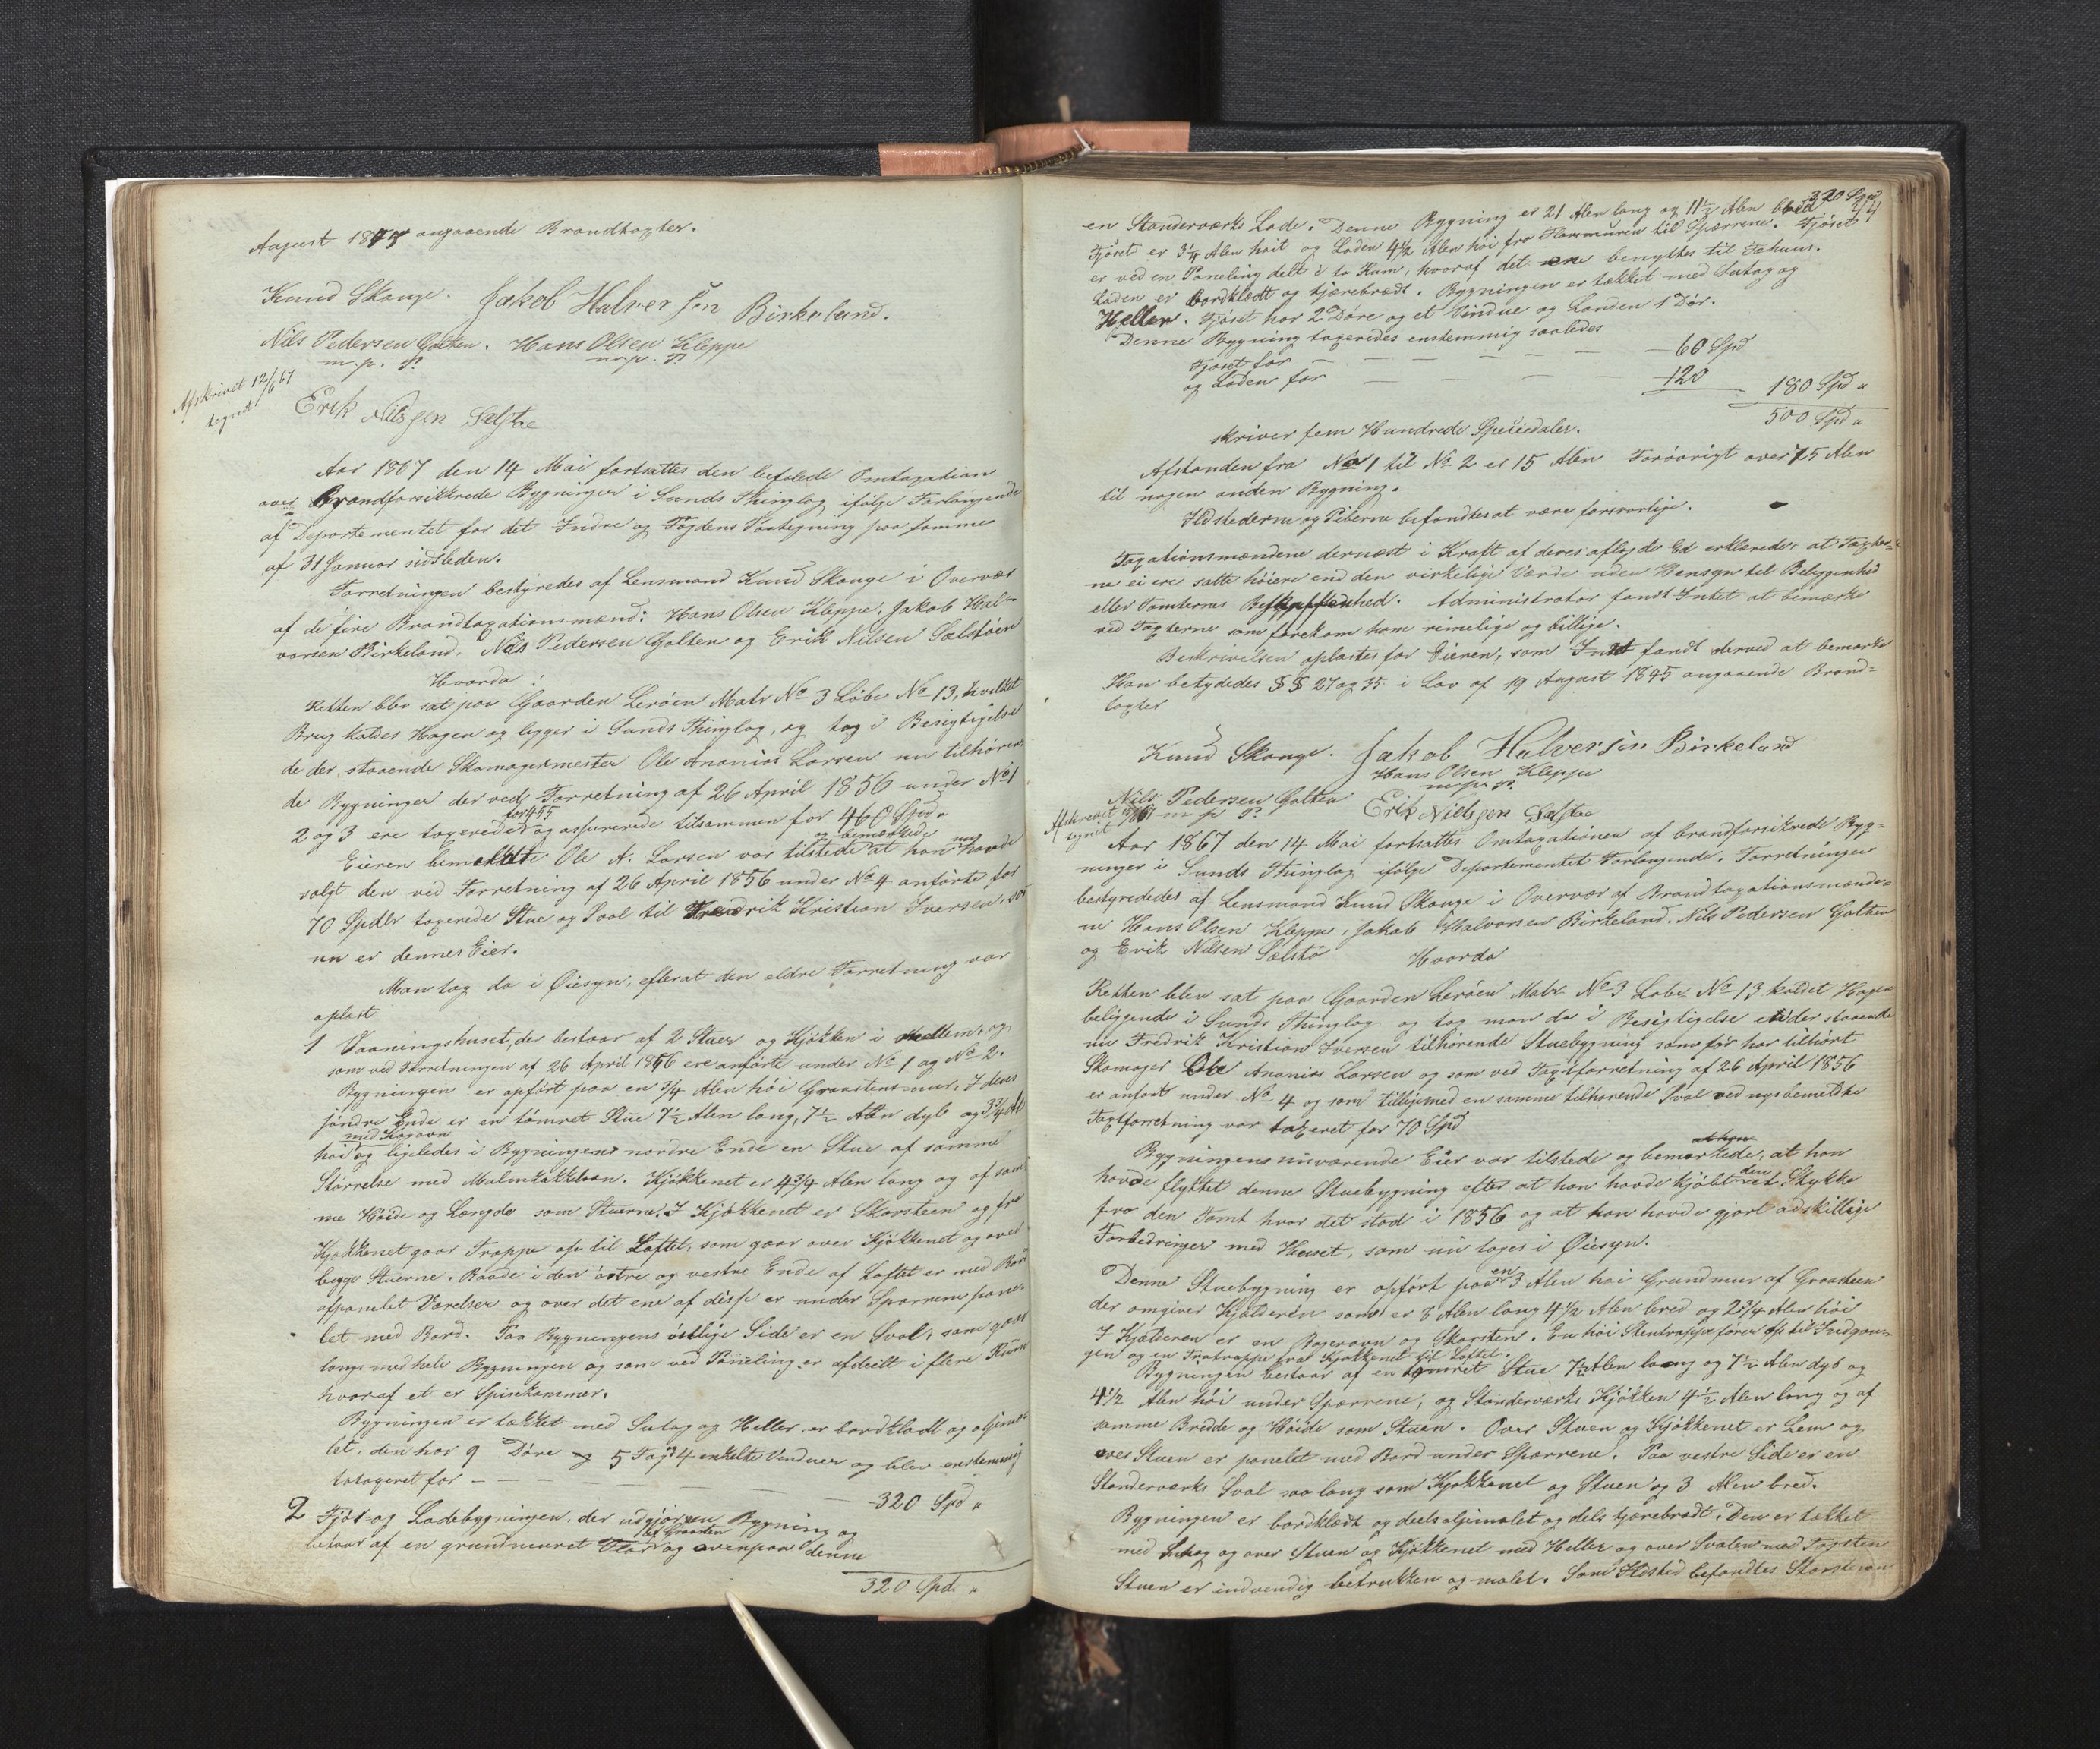 August 1845 angaaende Brandtagter.
Knud Skauge. Jakob Halversen Birkeland.
Nils Pedersen Golten. Hans Olsen Kleppe
m. p. P. m. p. P.
Afskrivet 12/6 67
tegnet
Erik Nilsen Sælstøe
Aar 1867 den 14 Mai fortsattes den befalede Omtaxation
over Brandforsikkrede Bygninger i Sunds Thinglag ifølge Forlangende
af Departementet for det Indre og Fogdens Paategning paa samme
af 31 Januar sidstleden.
Forretningen bestyredes af Lensmand Knud Skauge i Overvær
af de fire Brandtaxationsmænd: Hans Olsen Kleppe, Jakob Hal-
vorsen Birkeland, Nils Pedersen Golten og Erik Nilsen Sælstøen
Hvorda:
Retten blev sat paa Gaarden Lerøen Matr No 3 Løbe No 13, hvilket
Brug kaldes Hagen og ligger i Sunds Thinglag, og tog i Besigtigelse
de der staaende Skomagermester Ole Ananias Larsen nu tilhøren-
de Bygninger der ved Forretning af 26 April 1856 under No 1
2 og 3 ere taxerede og assurerede tilsammen for 460 Spd.
Eieren bemeldte Ole A. Larsen var tilstede og bemærkede at han nu havde
solgt den ved Forretning af 26 April 1856 under No 4 anførte for
70 Spdlr taxerede Stue og Sval til Fredrik Kristian Iversen, som
nu er dennes Eier.
Man tog da i Øiesyn, efterat den eldre Forretning var
oplæst
1 Vaaningshuset, der bestaar af 2 Stuer og Kjøkken i Mellem, og
som ved Forretningen af 26 April 1856 ere anførte under No 1 og No 2.
Bygningen er opført paa en 3/4 Alen høi Graastensmur. I dens
søndre Ende er en tømret Stue 7 1/2 Alen lang, 7 1/2 Alen dyb og 3 3/4 Al
høi med Kaovn og ligeledes i Bygningens nordre Ende en Stue af samme
Størrelse med Malmkakkelovn. Kjøkkenet er 4 3/4 Alen lang og af sam
me Høide og Længde som Stuerne. I Kjøkkenet er Skorsteen og fra
Kjøkkenet gaar Trappe op til Loftet, som gaar over Kjøkkenet og over
begge Stuerne. Baade i den østre og vestre Ende af Loftet er med Bord
afpanelet Værelser og over det ene af disse er under Sparrene pane-
let med Bord. Paa Bygningens østlige Side er en Sval, som gaar
langs med hele Bygningen og som ved Paneling er afdeelt i flere Rum
hvoraf et er Spisekammer.
Bygningen er tækket med Sutag og Heller, er bordklædt og oljema-
let, den har 9 Døre og 5 Fag 4 enkelte Vinduer og blev enstemmig
taxeret for - - - - - - 320 Spd "
2 Fjøs og Ladebygningen, der udgjør en Bygning og
bestaar af en grundmuret Fløi af Graasten og ovenpaa denne
320 Spd. "
320 Spd
44
en Standerværks Lade. Denne Bygning er 21 Alen lang og 11 1/2 Alen bred
Fjøset er 3 1/4 Alen høit og Laden 4 1/2 Alen høi fra Flormuren til Spærrene. Fjøset
er ved en Paneling delt i to Rum, hvoraf det ene benyttes til Fæhuus.
Laden er bordklædt og tjærebrædt. Bygningen er tækket med Sutag og
Heller. Fjøset har 2 Døre og et Vindue og Landen 1 Dør.
Denne Bygning taxeredes enstemmig saaledes
Fjøset for - - - - - 60 Spd
og Laden for - - - - - 120 180 Spd "
500 Spd "
skriver fem Hundrede Speciedaler.
Afstanden fra No 1 til No 2 er 15 Alen Forøvrigt over 75 Alen
til nogen anden Bygning.
Ildstederne og Piberne befandtes at være forsvarlige.
Taxationsmændene dernæst i Kraft af deres aflagde Ed erklærede, at Taxter-
ne ei ere satte høiere end den virkelige Værdi uden Hensyn til Beliggenhed
eller Tomternes Beskaffenhed. Administrator fandt Intet at bemærke
ved Taxterne som forekom ham rimelige og billige.
Beskrivelsen oplæstes for Eieren, som Intet fandt derved at bemærke
Han betydedes §§ 27 og 35 i Lov af 19 August 1845 angaaende Brand-
taxter
Knud Skauge. Jakob Halversen Birkeland
Hans Olsen Kleppe
m. p. P.
Nils Pedersen Golten
m p P.
Erik Nielsen Sælstøe
Afskrevet
tegnet
Aar 1867 den 14 Mai fortsattes Omtaxationen af brandforsikrede Byg-
ninger i Sunds Thinglag ifølge Departementet Forlangende. Forretningen
bestyrededes af Lensmand Knud Skauge i Overvær af Brandtaxationsmænde-
ne Hans Olsen Kleppe, Jakob Halvorsen Birkeland, Nils Pedersen Golten
og Erik Nilsen Sælstø Hvorda
Retten blev sat paa Gaarden Lerøen Matr No 3 Løbe No 13 kaldet Hagen
beliggende i Sunds Thinglag og tog man da i Besigtigelse et der staaende
nu Fredrik Kristian Iversen tilhørende Stuebygning som før har tilhørt
Skomager Ole Ananias Larsen og som ved Taxtforretning af 26 April 1856
er anført under No 4 og som tilligemed en samme tilhørende Sval ved nysbemeldte
Taxtforretning var taxeret for 70 Spd
Bygningens nuværende Eier var tilstede og bemærkede, at han
havde flyttet denne Stuebygning efter at han havde kjøbt den et Stykke
fra den Tomt hvor det stod i 1856 og at han havde gjort adskillige
Forbedringer med Huset, som nu toges i Øiesyn.
Denne Stuebygning er opført paa en 3 Alen høi Grundmur af Graasteen
der omgiver Kjælderen som er 8 Alen lang 4 1/2 Alen bred og 2 3/4 Alen høi
I Kjælderen er en Bagerovn og Skorsten. En høi Stentrappe fører op til Indgan-
gen og en Trætrappe fra Kjøkkenet til Loftet.
Bygningen bestaar af en tømret Stue 7 1/2 Alen lang og 7 1/2 Alen dyb og
4 1/2 Alen høi under Spærrene, og Standerværks Kjøkken 4 1/2 Alen lang og af
samme Bredde og Høide som Stuen. Over Stuen og Kjøkkenet er Lem og
over Stuen er panelet med Bord under Spærrene. Paa vestre Side er en
Standerværks Sval saa lang som Kjøkkenet og Stuen og 3 Alen bred.
Bygningen er bordklædt og deels oljemalet og dels tjærebrædt. Den er tækket
med Sutag og over Stuen og Kjøkkenet med Heller og over Svalen med Tagsten
Stuen er indvendig betrukken og malet. Som Ildsted befandtes Skorstenen